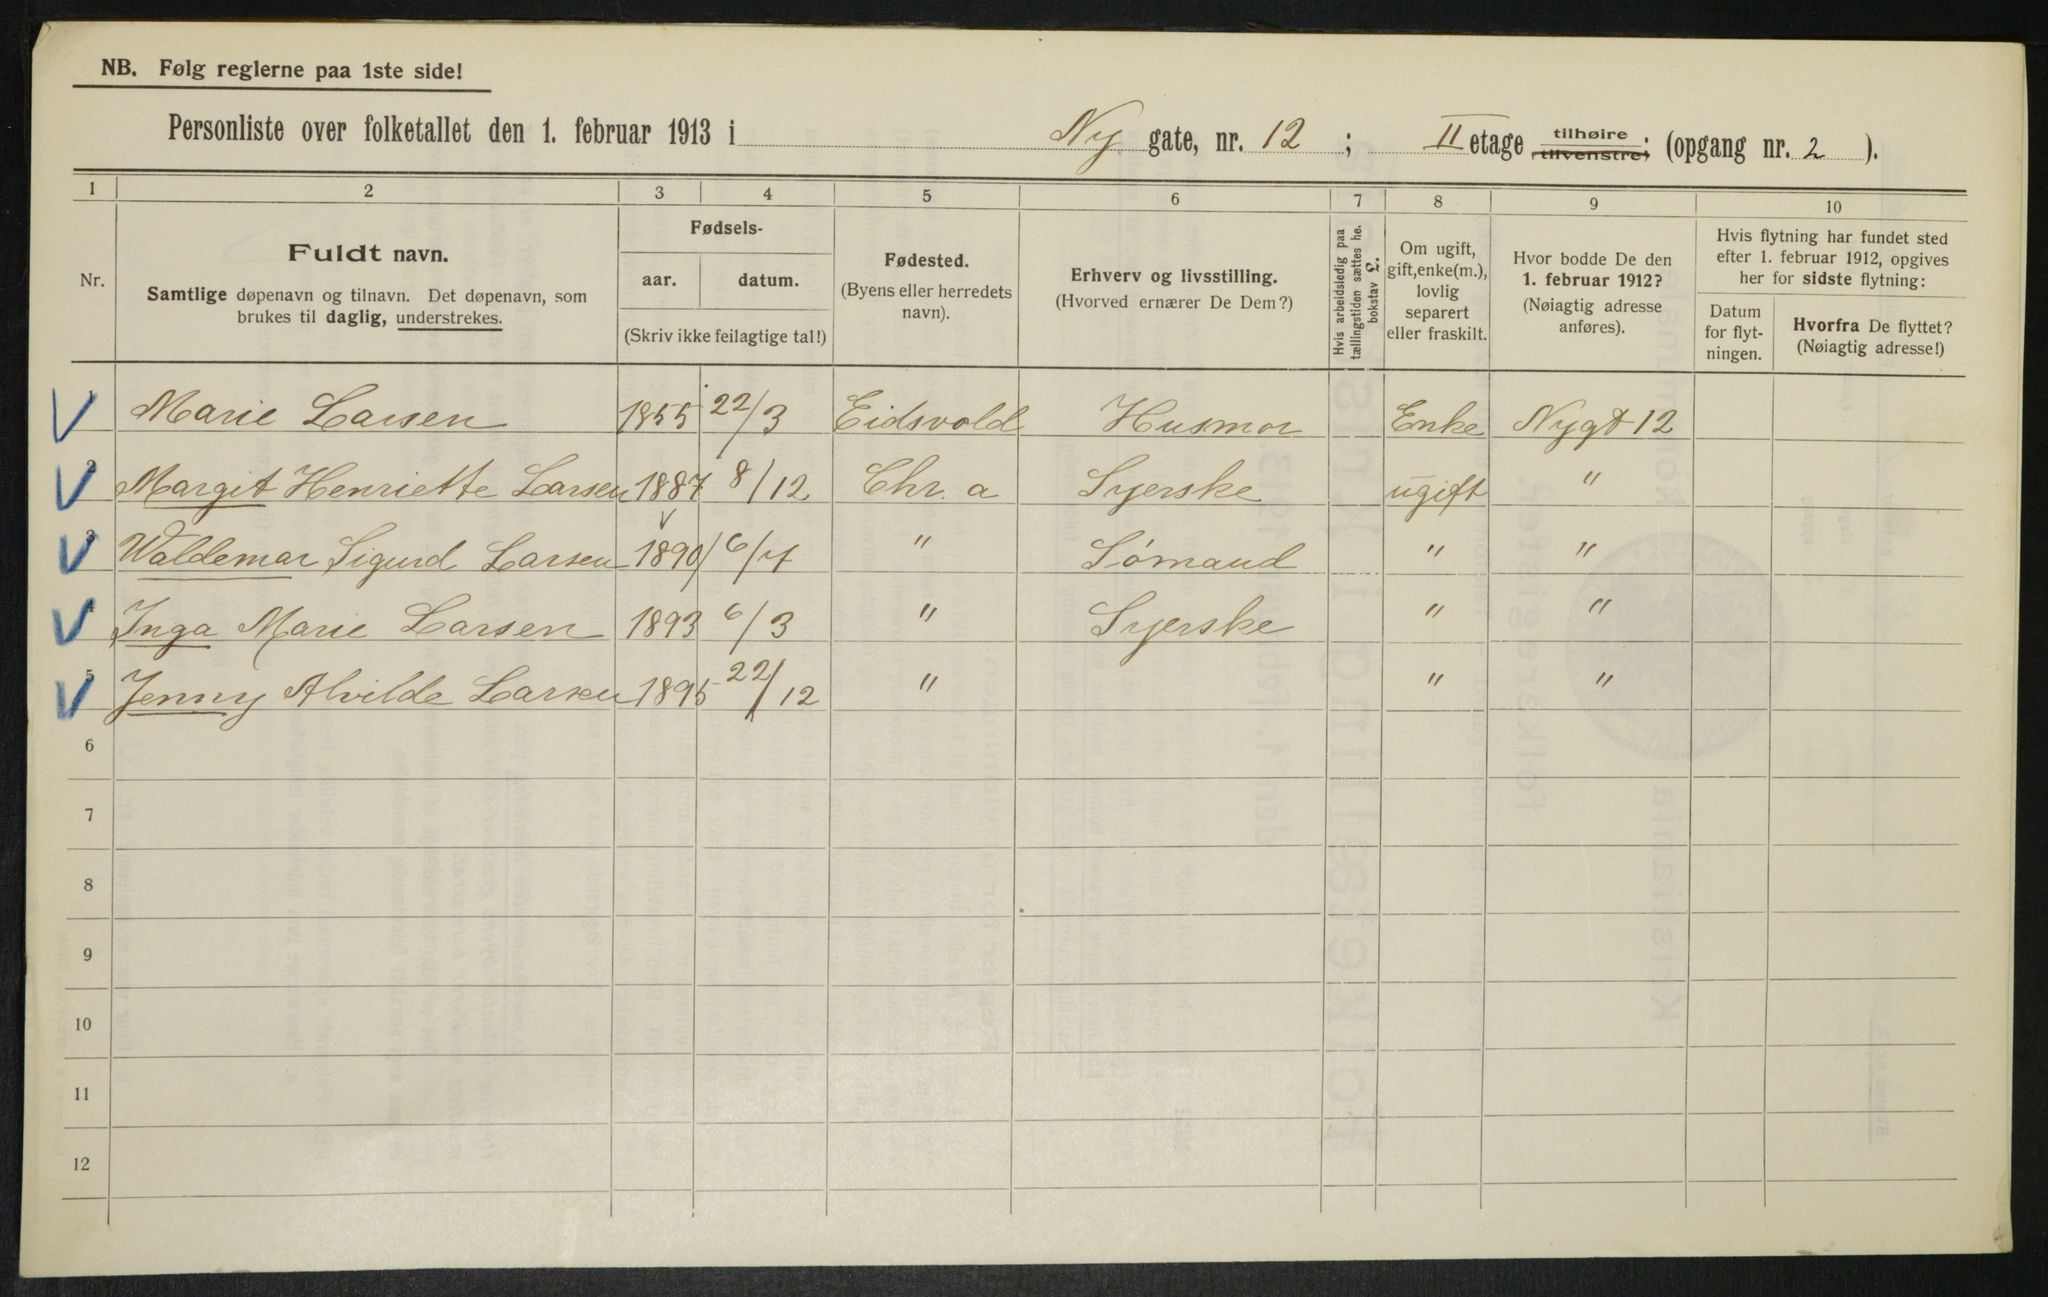 NB. Følg reglerne paa 1ste side!
Personliste over folketallet den 1. februar 1913 i Ny gate, nr. 12 ; II etage tilhøire tilvenstre; (opgang nr. 2 ).
1 2 3 4 5 6 7 8 9 10
Nr.
Fuldt navn.
Samtlige døpenavn og tilnavn. Det døpenavn, som
brukes til daglig, understrekes.
Fødsels-
aar. datum.
(Skriv ikke feilagtige tal!)
Fødested.
(Byens eller herredets
navn).
Erhverv og livsstilling.
(Hvorved ernærer De Dem?)
Hvis arbeidsledig paa
tællingstiden sættes he.
bokstav £.
Om ugift,
gift, enke(m.),
lovlig
separert
eller fraskilt.
Hvor bodde De den
1. februar 1912?
(Nøiagtig adresse
anføres).
Hvis flytning har fundet sted
efter 1. februar 1912, opgives
her for sidste flytning:
Datum
for flyt-
ningen.
Hvorfra De flyttet?
(Nøiagtig adresse!)
1 Marie Larsen 1855 22/3 Eidsvold Husmor Enke Nygt 12
2 Margit Henriette Larsen 1887 8/12 Chr. a Syerske ugift "
3 Waldemar Sigurd Larsen 1890 6/4 " Sømand " "
4 Inga Marie Larsen 1893 6/3 " Syerske " "
5 Jenny Alvilde Larsen 1895 22/12 " " "
6
7
8
9
10
11
12